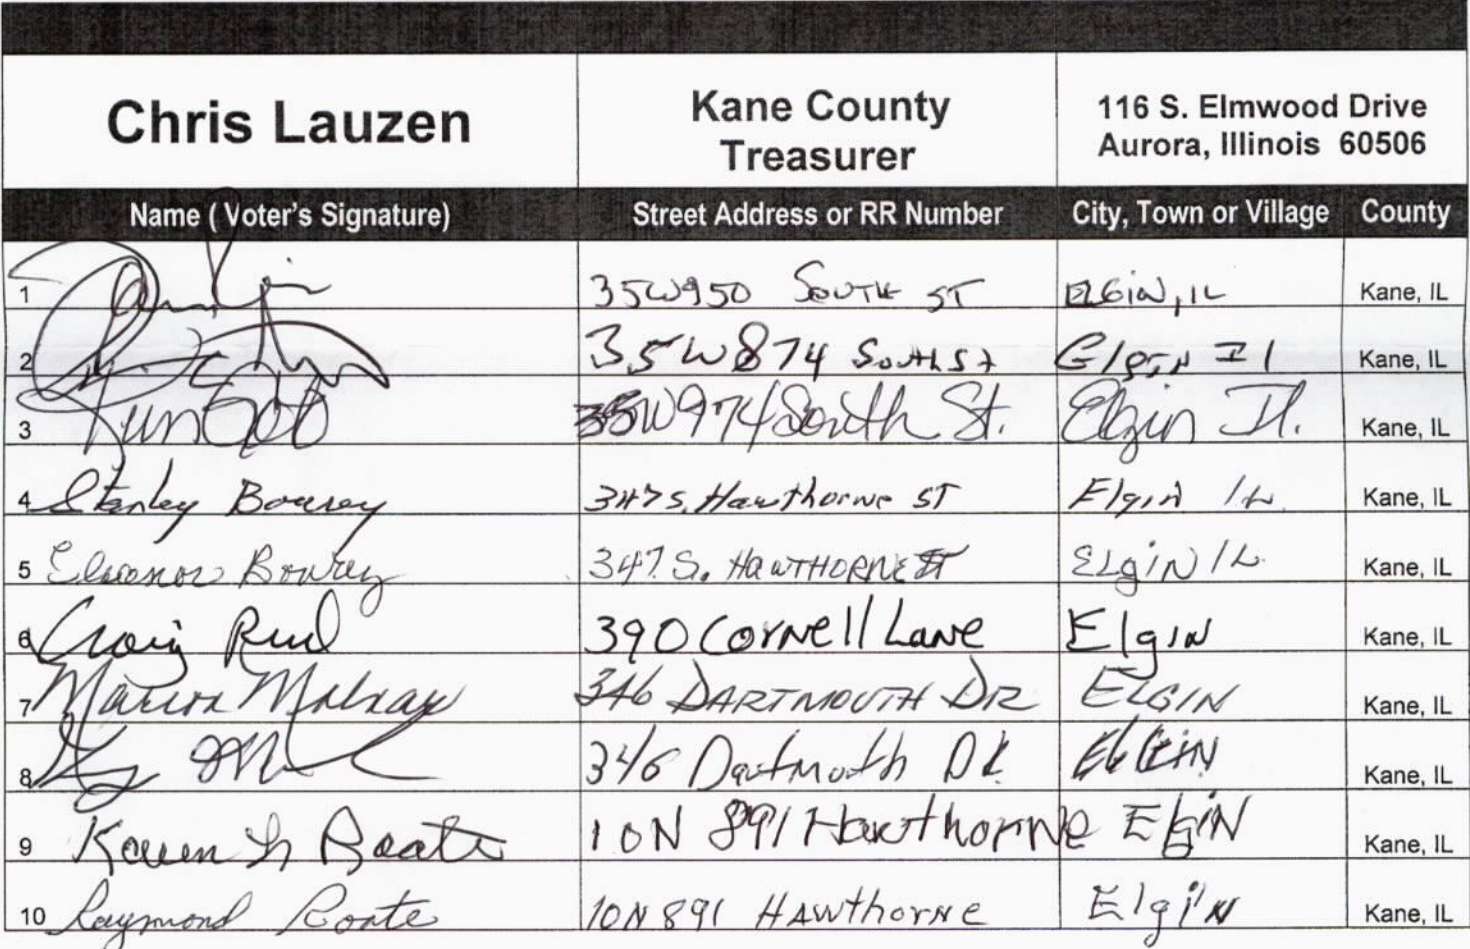 Chris Lauzen
Kane County
Treasurer
116 S. Elmwood Drive
Aurora, Illinois 60506
Name ( Voter's Signature) Street Address or RR Number City, Town or Village County
1 35W950 SOUTH ST ELGIN, IL Kane, IL
2 35W874 South St Elgin Il Kane, IL
3 35W974 South St. Elgin Il. Kane, IL
4 Stanley Bowrey 347 S. Hawthorne ST Elgin IL Kane, IL
5 Eleonor Bowrey 347 S. HAWTHORNE ST ELgIN IL Kane, IL
6 Craig 390 Cornell Lane Elgin Kane, IL
7 346 DARTMOUTH DR ELGIN Kane, IL
8 346 Dartmouth DR ELGIN Kane, IL
9 Karen 10N 891 Hawthorne Elgin Kane, IL
10 Raymond 10N 891 HAwthorne Elgin Kane, IL